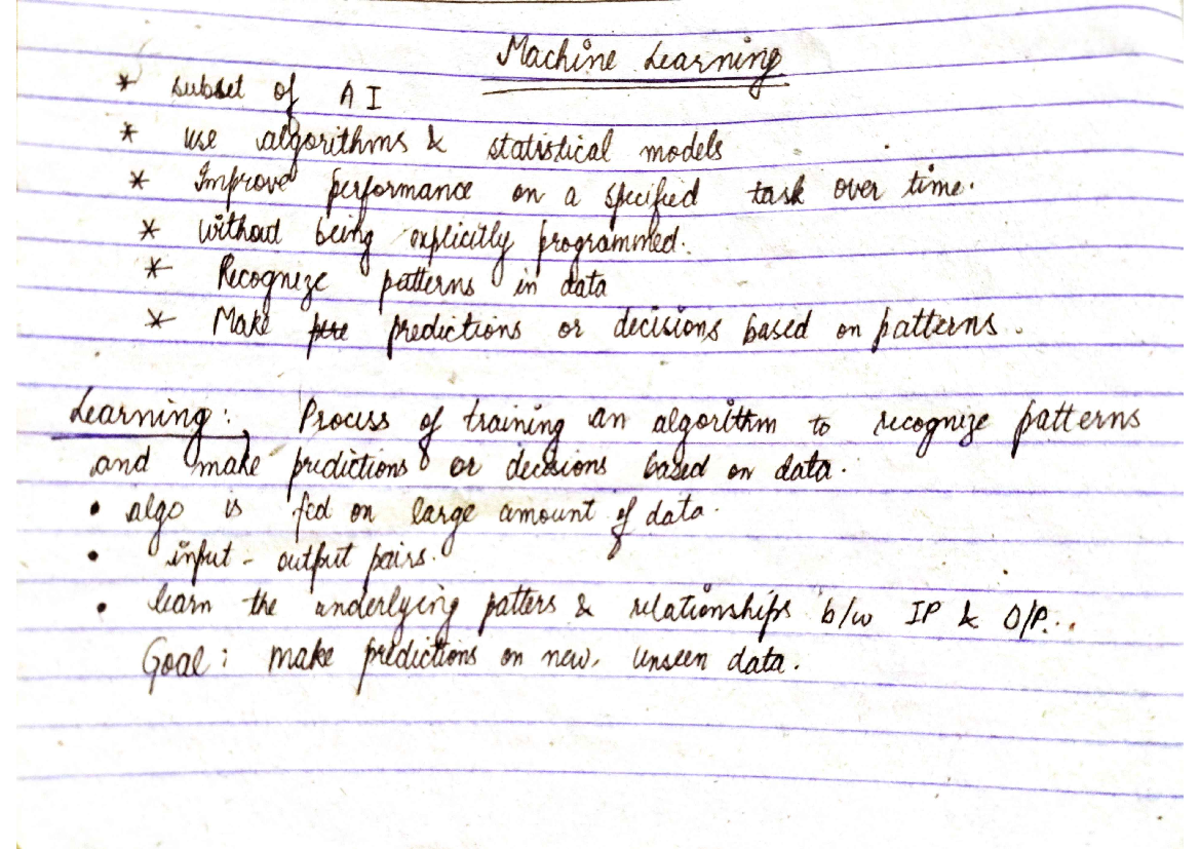 Machine Learning
* subset of AI
* use algorithms & statistical models
* Improve performance on a specified task over time.
* without being explicitly programmed.
* Recognize patterns in data
* Make ptre predictions or decisions based on patterns.
Learning: Process of training an algorithm to recognize patterns
and make predictions or decisions based on data.
• algo is fed on large amount of data.
• input - output pairs.
• learn the underlying patters & relationships b/w IP & O/P..
Goal: make predictions on new, unseen data.